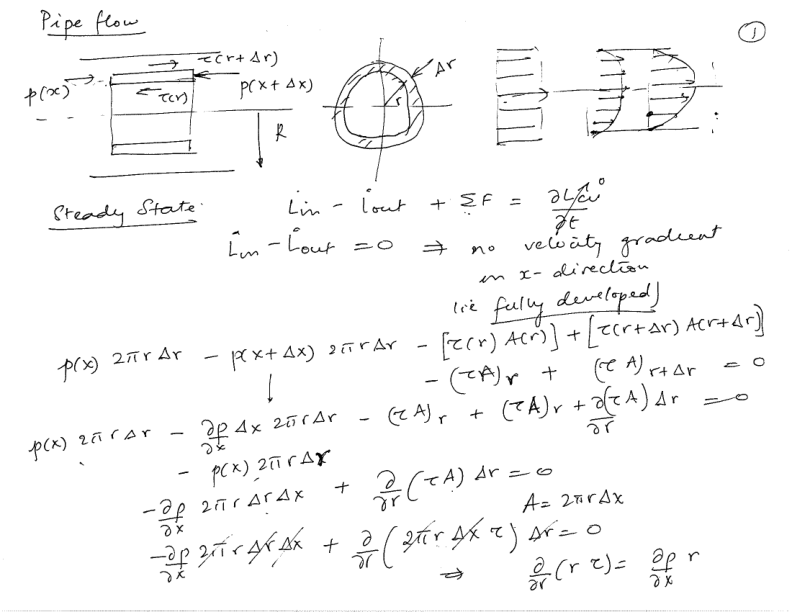 Pipe flow
1
τ(r+Δr)
p(x)
τ(r)
p(x+Δx)
R
Δr
r
Steady State
L̇in - L̇out + ΣF = ∂Lcv/∂t 0
L̇in - L̇out = 0 ⇒ no velocity gradient
in x-direction
(ie fully developed)
p(x) 2πrΔr - p(x+Δx) 2πrΔr - [τ(r) A(r)] + [τ(r+Δr) A(r+Δr)]
- (τA)r + (τA)r+Δr = 0
p(x) 2πrΔr - ∂p/∂x Δx 2πrΔr - (τA)r + (τA)r + ∂(τA)/∂r Δr = 0
- p(x) 2πrΔr
-∂p/∂x 2πrΔrΔx + ∂/∂r (τA) Δr = 0
A = 2πrΔx
-∂p/∂x 2πrΔrΔx + ∂/∂r (2πrΔx τ) Δr = 0
⇒ ∂/∂r (r τ) = ∂p/∂x r